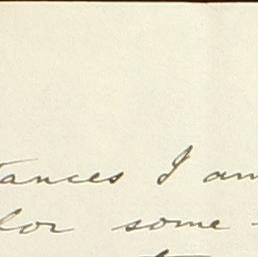 tances I am
for some